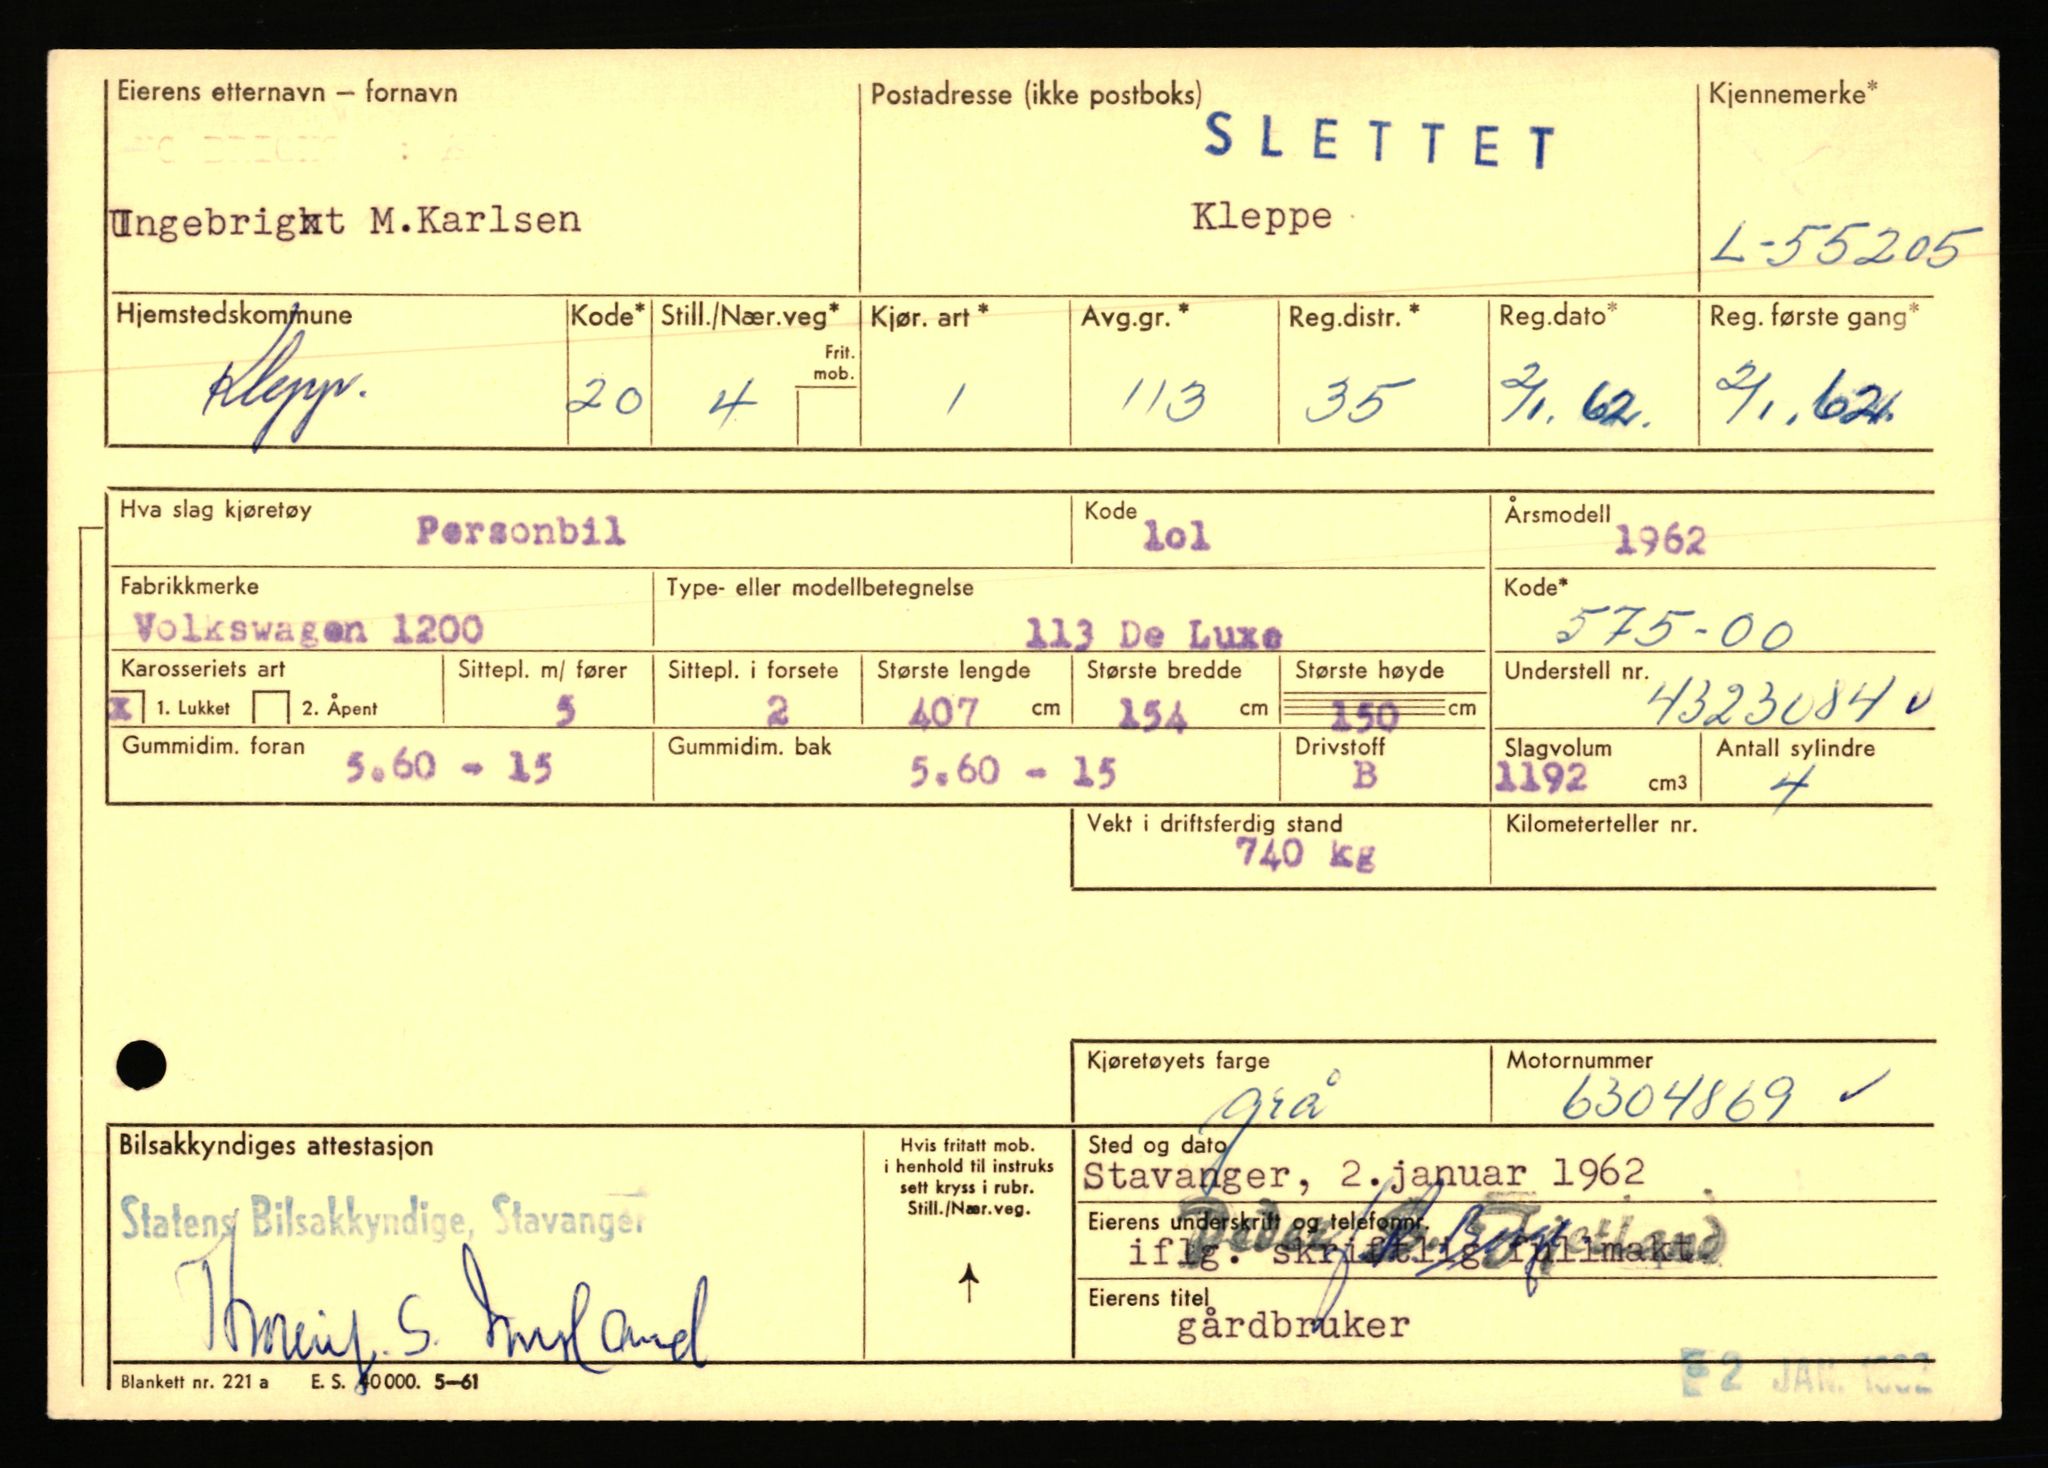 Eierens etternavn – fornavn
Postadresse (ikke postboks)
Kjennemerke*
SLETTET
Ingebrigt M.Karlsen
Kleppe
L-55205
Hjemstedskommune
Kode*
Still./Nær.veg*
Frit. mob.
Kjør. art*
Avg.gr.*
Reg.distr.*
Reg.dato*
Reg. første gang*
Klepp.
20
4
1
113
35
2/1. 62.
2/1. 62.
Hva slag kjøretøy
Personbil
Kode
lol
Årsmodell
1962
Fabrikkmerke
Volkswagen 1200
Type- eller modellbetegnelse
113 De Luxe
Kode*
575-00
Karosseriets art
x 1. Lukket 2. Åpent
Sittepl. m/ fører
5
Sittepl. i forsete
2
Største lengde
407 cm
Største bredde
154 cm
Største høyde
150 cm
Understell nr.
4323084 ✓
Gummidim. foran
5.60 - 15
Gummidim. bak
5.60 - 15
Drivstoff
B
Slagvolum
1192 cm3
Antall sylindre
4
Vekt i driftsferdig stand
740 kg
Kilometerteller nr.
Kjøretøyets farge
grå
Motornummer
6304869 ✓
Bilsakkyndiges attestasjon
Statens Bilsakkyndige, Stavanger
Hvis fritatt mob.
i henhold til instruks
sett kryss i rubr.
Still./Nær.veg.
↑
Sted og dato
Stavanger, 2.januar 1962
Eierens underskrift og telefonnr.
iflg. skriftlig fullmakt.
Eierens titel
gårdbruker
Blankett nr. 221 a E. S. 40 000. 5–61
2 JAN.